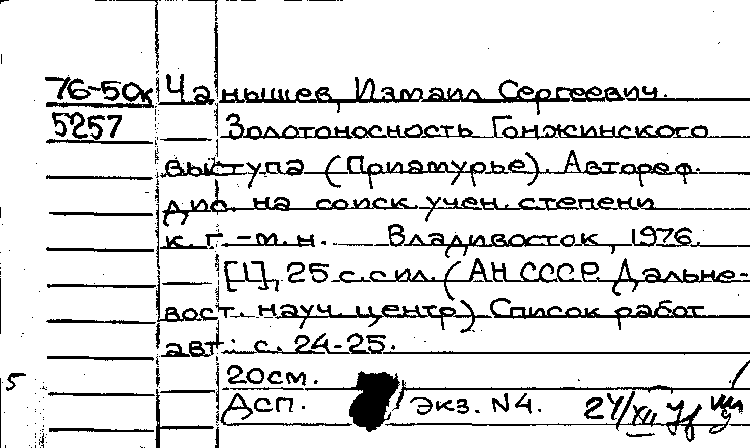 76-50к Чанышев, Измаил Сергеевич.
5257 Золотоносность Гонжинского
выступа (Приамурье). Автореф.
дис. на соиск. учен. степени
к. г.-м. н. Владивосток, 1976.
[1], 25 с. с ил. (АН СССР. Дальне-
вост. науч. центр) Список работ
авт.: с. 24-25.
20см.
5
Дсп. экз. N4. 24/XII